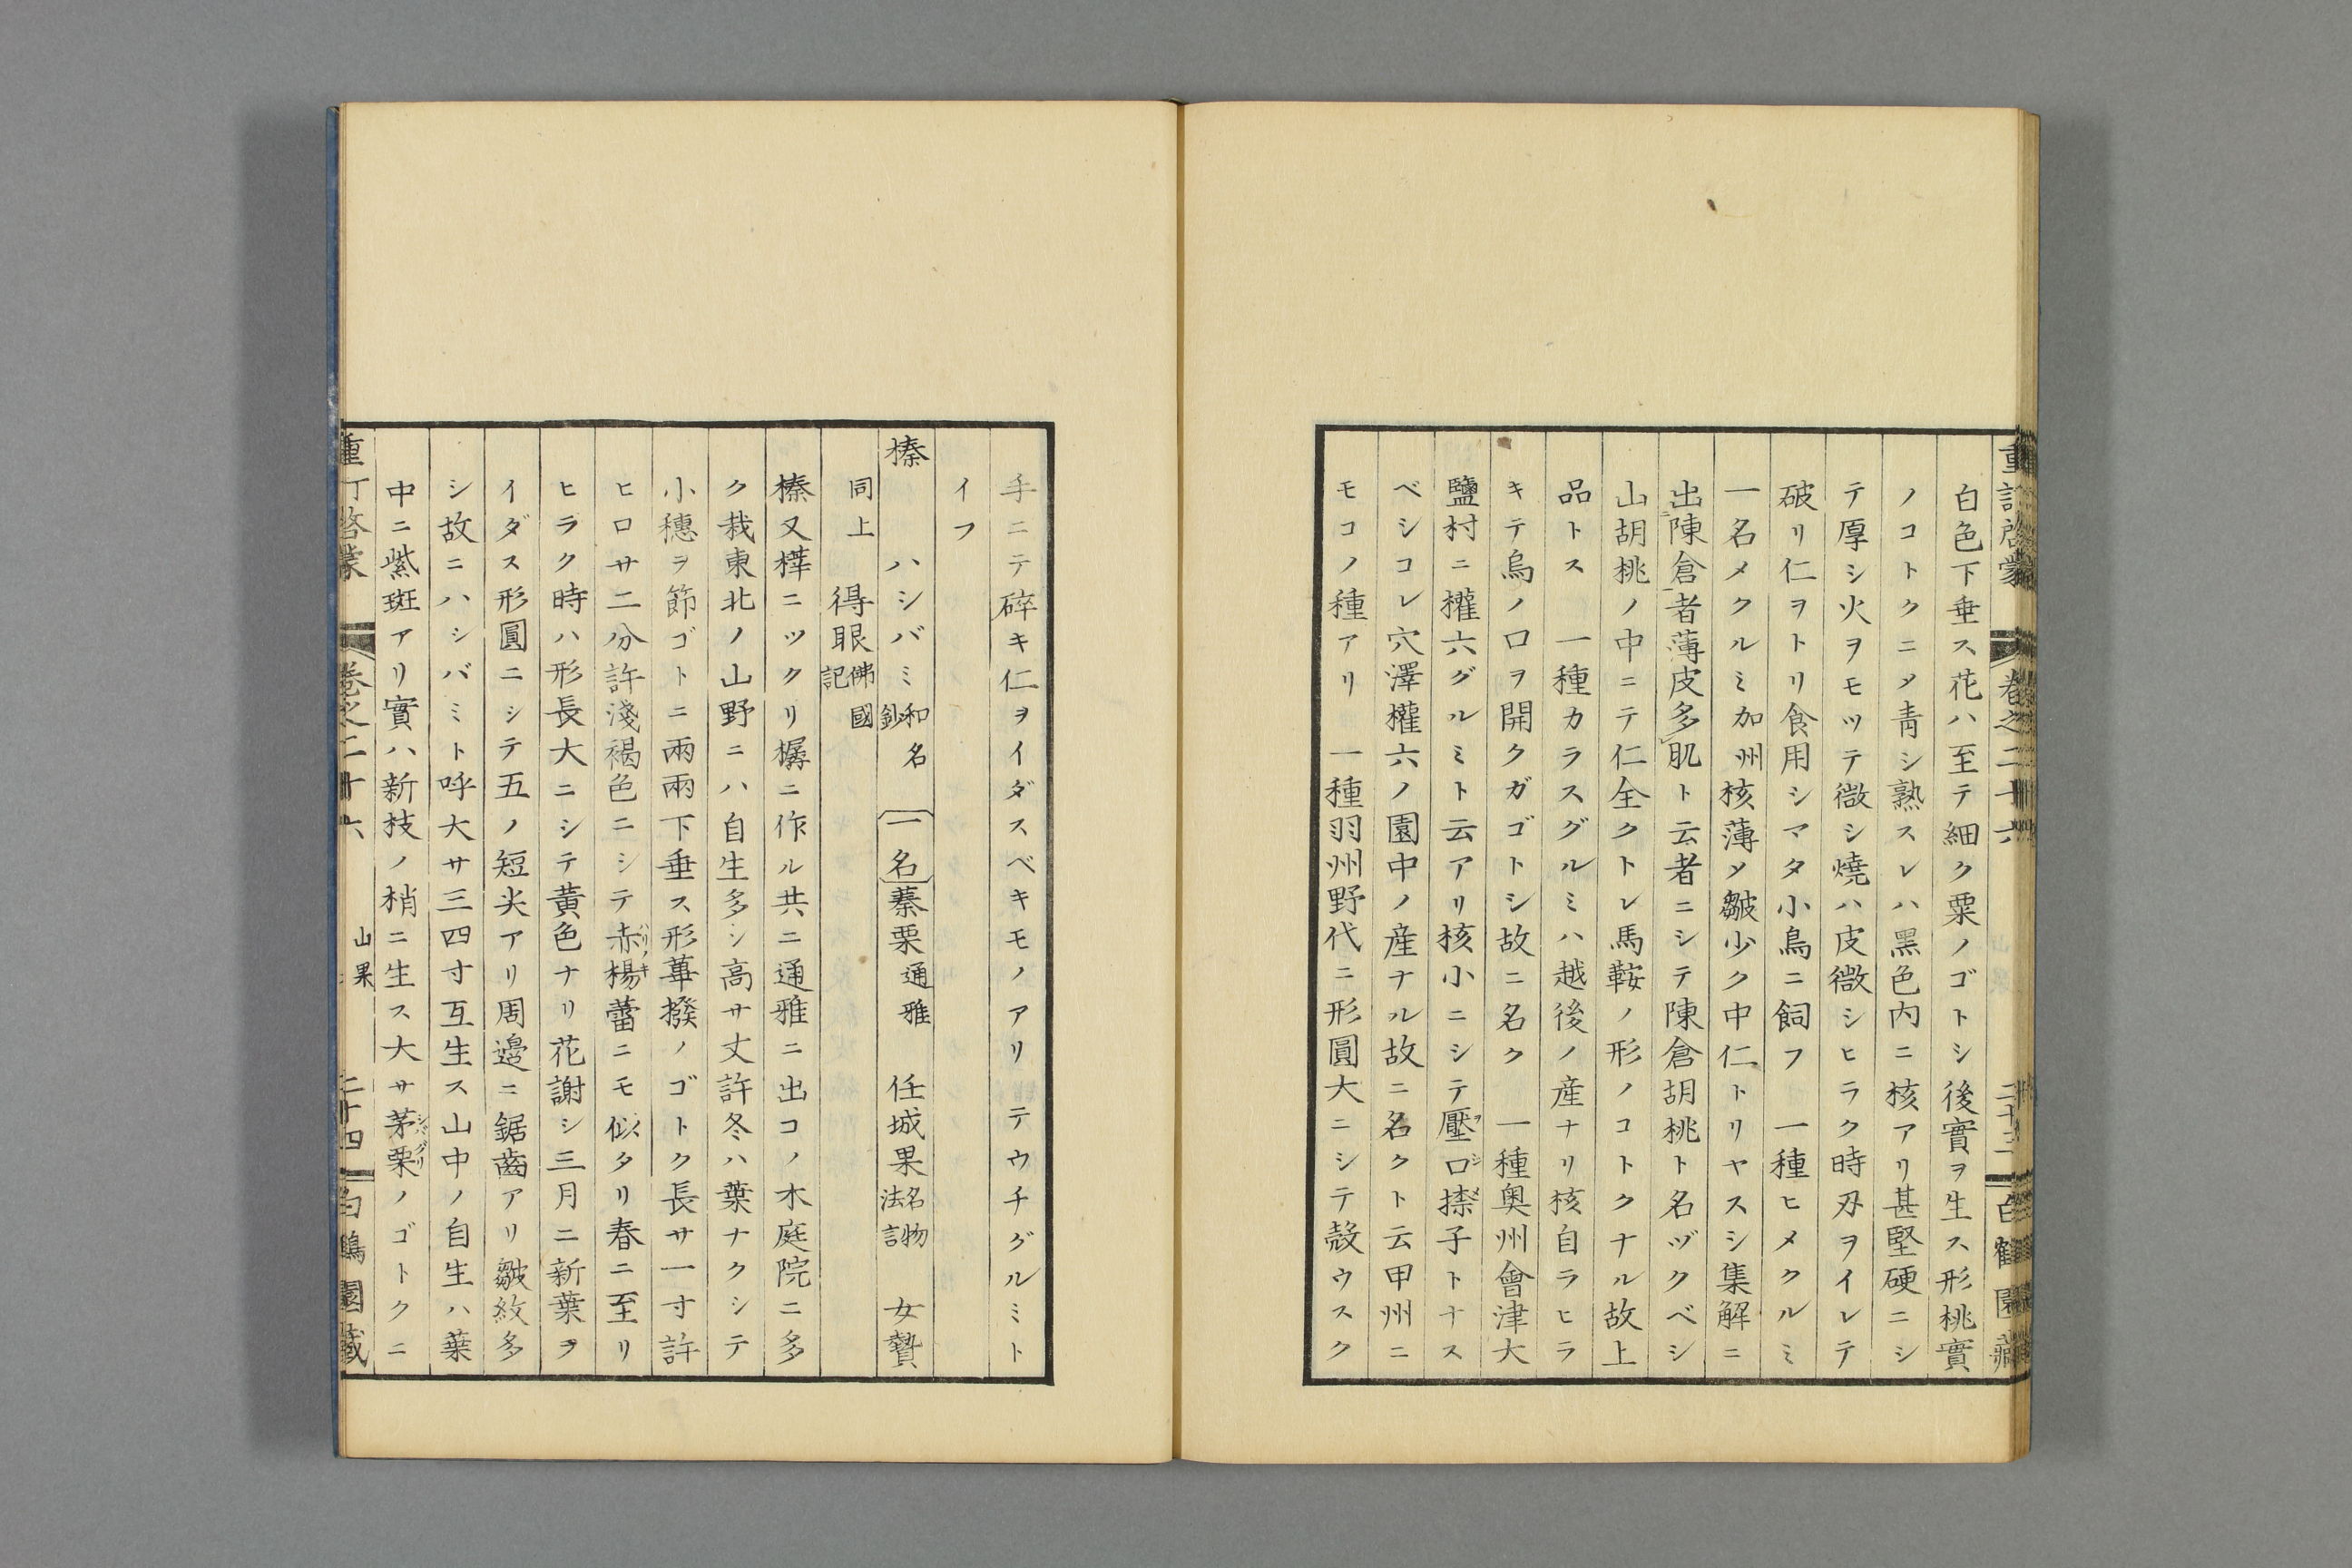 重訂啓蒙 卷之二十六 二十三 白鶴園藏
白色下垂ス花ハ至テ細ク粟ノゴトシ後實ヲ生ス形桃實
ノコトクニメ青シ熟スレハ黑色内ニ核アリ甚堅硬ニシ
テ厚シ火ヲモツテ微シ燒ハ皮微シヒラク時刄ヲイレテ
破リ仁ヲトリ食用シマタ小鳥ニ飼フ 一種ヒメクルミ
一名メクルミ加州核薄メ皺少ク中仁トリヤスシ集解ニ
出陳倉者薄皮多肌ト云者ニシテ陳倉胡桃ト名ヅクベシ
山胡桃ノ中ニテ仁全クトレ馬鞍ノ形ノコトクナル故上
品トス 一種カラスグルミハ越後ノ産ナリ核自ラヒラ
キテ烏ノ口ヲ開クガゴトシ故ニ名ク 一種奥州會津大
鹽村ニ權六グルミト云アリ核小ニシテ壓口捺子トナス
ベシコレ穴澤權六ノ園中ノ産ナル故ニ名クト云甲州ニ
モコノ種アリ 一種羽州野代ニ形圓大ニシテ殼ウスク
手ニテ碎キ仁ヲイダスベキモノアリ テウチグルミト
イフ
榛 ハシバミ 和名鈔 一名 蓁栗 通雅 任城果 名物法言 女贄
同上 得眼 佛國記
榛又樺ニツクリ樼ニ作ル共ニ通雅ニ出コノ木庭院ニ多
ク栽東北ノ山野ニハ自生多シ高サ丈許冬ハ葉ナクシテ
小穗ヲ節ゴトニ兩兩下垂ス形蓽撥ノゴトク長サ一寸許
ヒロサ二分許淺褐色ニシテ赤楊蕾ニモ似タリ春ニ至リ
ヒラク時ハ形長大ニシテ黄色ナリ花謝シ三月ニ新葉ヲ
イダス形圓ニシテ五ノ短尖アリ周邊ニ鋸齒アリ皺紋多
シ故ニハシバミト呼大サ三四寸互生ス山中ノ自生ハ葉
中ニ紫斑アリ實ハ新枝ノ梢ニ生ス大サ茅栗ノゴトクニ
重訂啓蒙 卷之二十六 山果 二十四 白鶴園藏